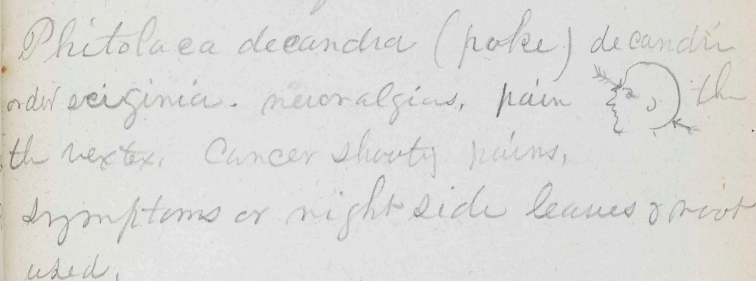 Phitolaca decandra (poke) decandri
order neuralgias, pain th
th vextex. Cancer shooty pains,
symptoms or right side leaves & root
used.